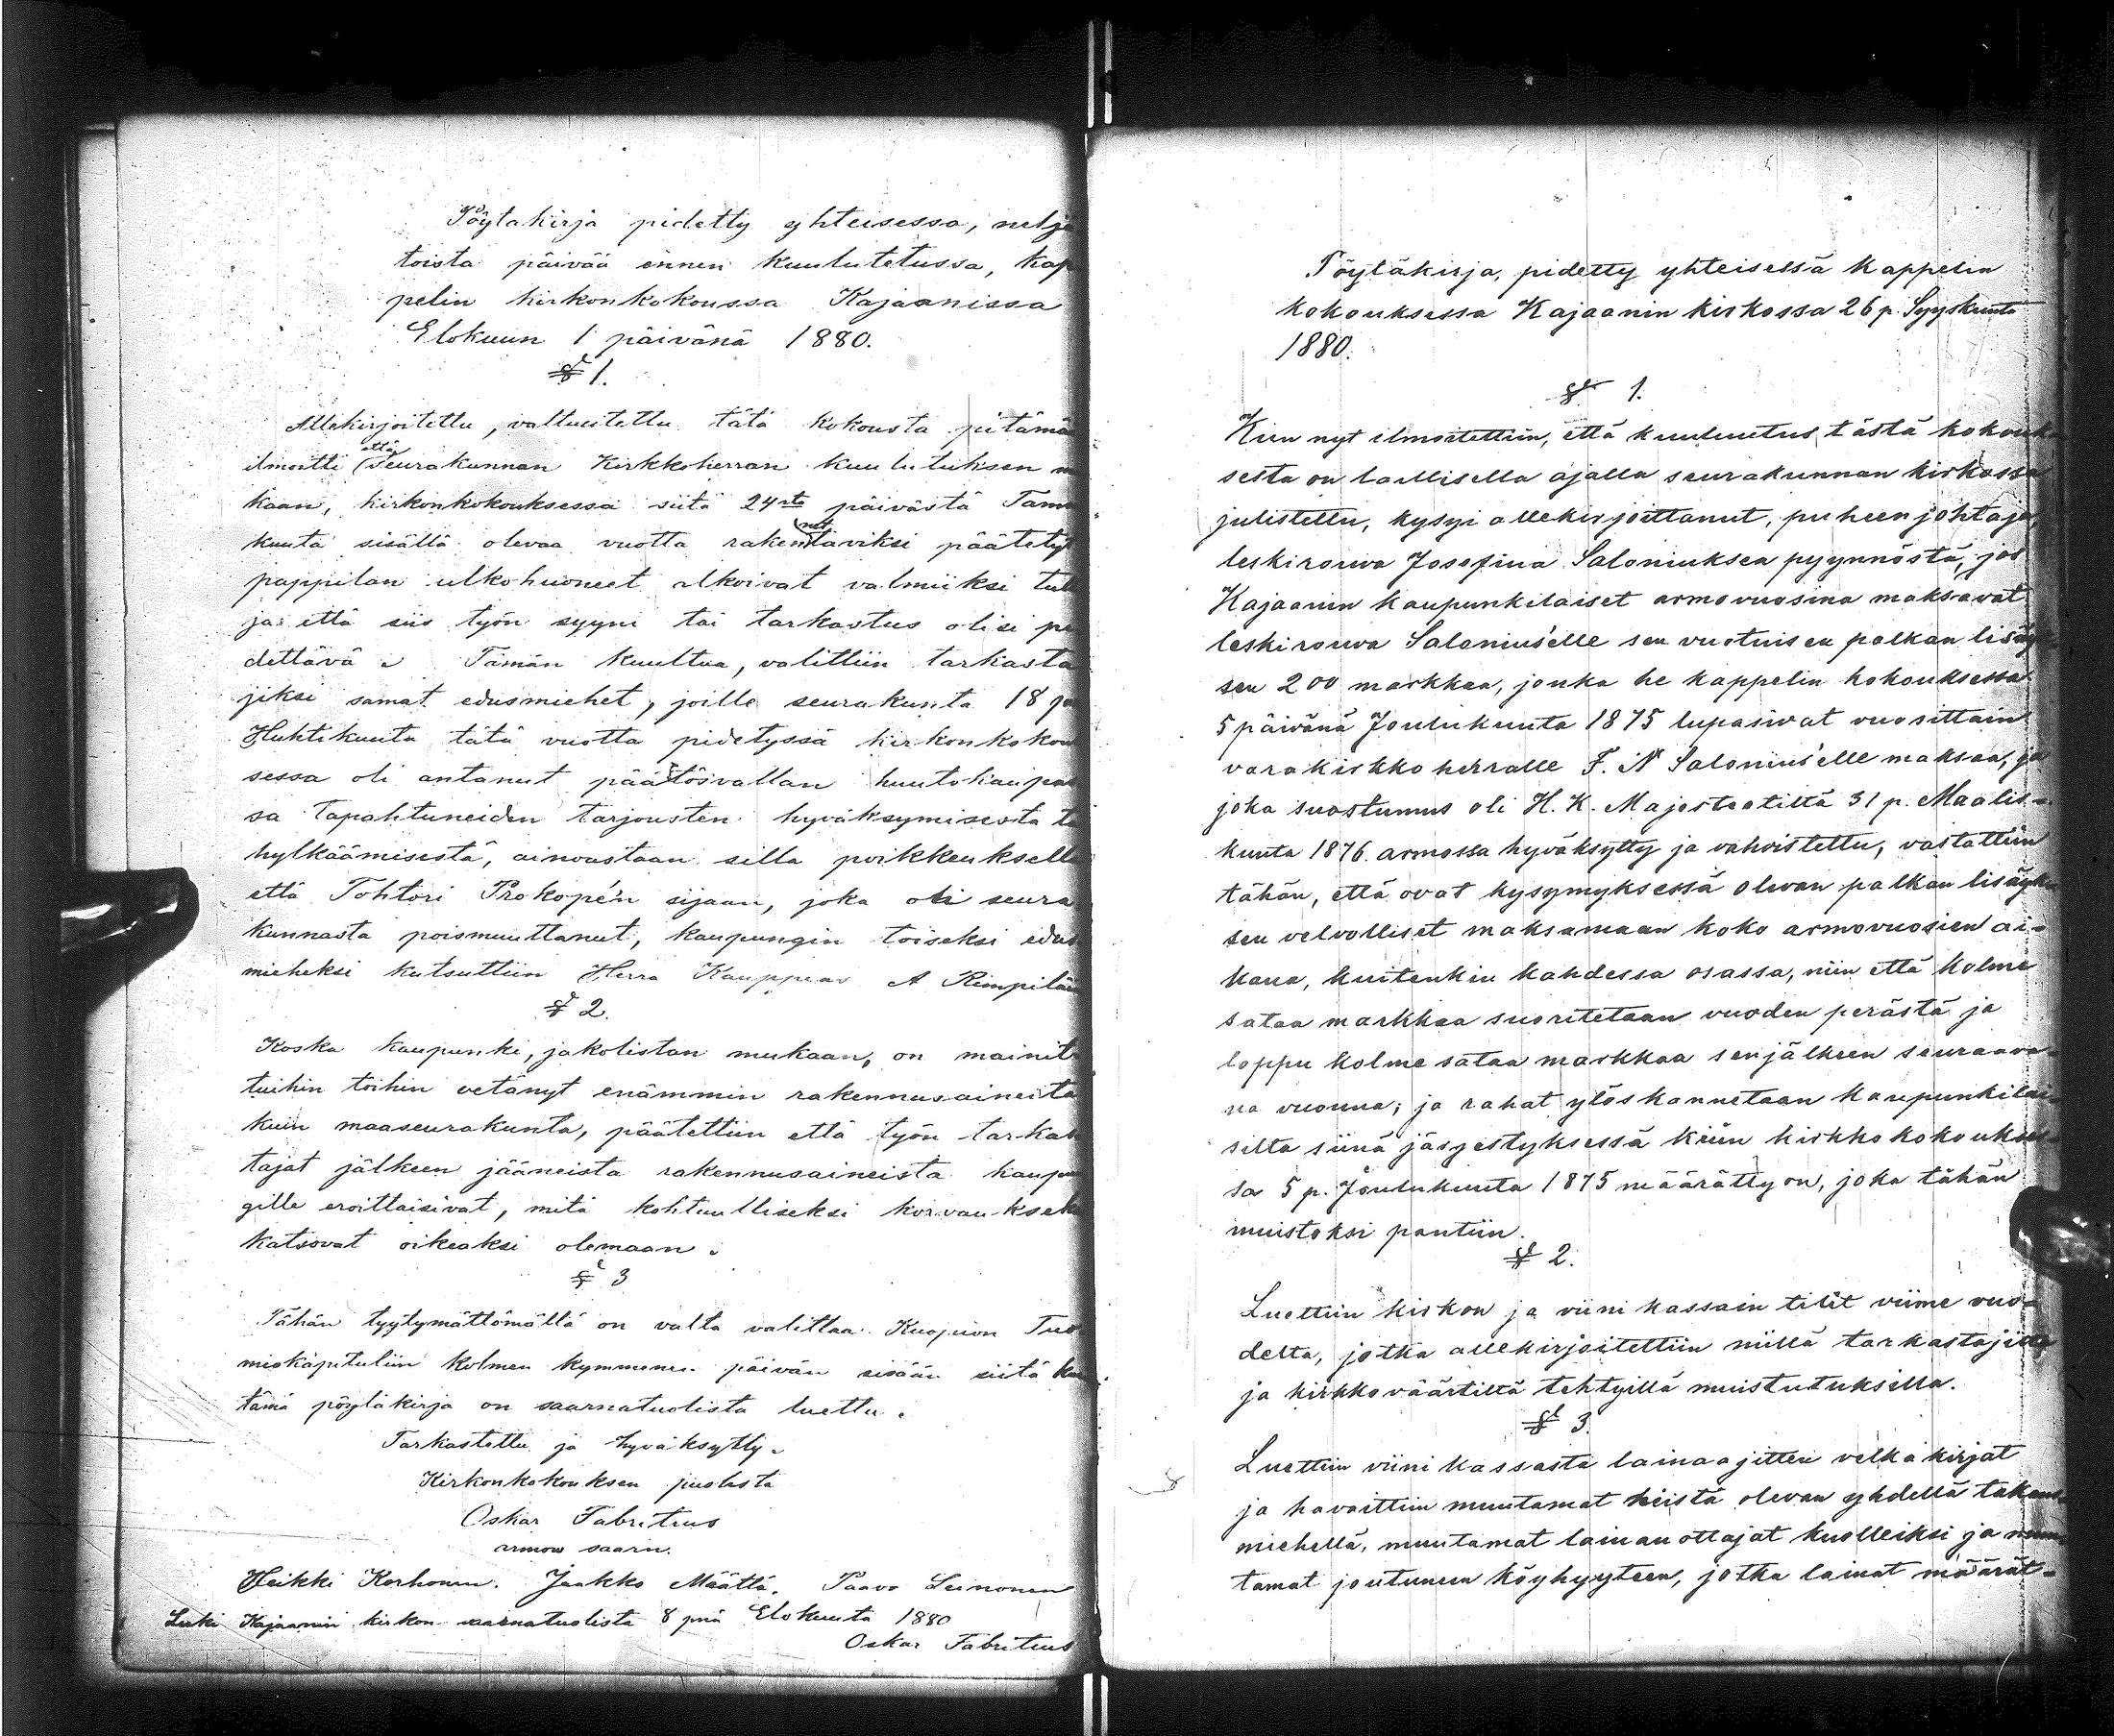 Pöytakirja pidetty yhteisessa, nelja
toista päivää ennen kuulutetussa, kap
pelin kirkonkokoussa Kajaanissa
Elokuun 1 päivänä 1880.
§ 1.
Allekirjoitettu, valtuutettu tätä kokousta pitämä
ilmoitti että Seurakunnan Kirkkoherran kuulutuksen m
kaan, kirkonkokouksessa siitä 24rtä päivästä Tam
kuuta sisällä olevaa vuotta rakennettaviksi päätety
pappilan ulkohuoneet alkoivat valmiiksi tul
ja että siis työn syyni tai tarkastus olisi pi
dettävä. Tämän kuultua, valittiin tarkasta
jiksi samat edusmiehet, joille seurakunta 18 p
Huhtikuuta tätä vuotta pidetyssä kirkonkokou
sessa oli antanut päätösvallan huutokaupas
sa tapahtuneiden tarjousten hyväksymisestä ta
hylkäämisestä, ainoastaan sillä poikkeuksella
että Tohtori Prokopé'n sijaan, joka oli seura
kunnasta poismuuttanut, kaupungin toiseksi edus
mieheksi kutsuttiin Herra Kauppias A Rimpiläi
§ 2.
Koska kaupunki, jakolistan mukaan, on mainit
tuihin töihin vetänyt enämmin rakennusaineita
kuin maaseurakunta, päätettiin että työn tarkas
tajat jälkeen jääneista rakennusaineista kaupun
gille eroittaisivat, mitä kohtuulliseksi korvaukseks
katsovat oikeaksi olemaan.
§ 3
Tähän tyytymättömällä on valta valittaa Kuopion Tuo
miokapituliin kolmen kymmenen päivän sisään siitä kun
tämä pöytäkirja on saarnatuolista luettu.
Tarkastettu ja hyväksytty.
Kirkonkokouksen puolesta
Oskar Fabritius
armov saarn.
Heikki Korhonen. Jaakko Määttä. Paavo Leinonen
Luki Kajaanin kirkon saarnatuolista 8 pnä Elokuuta 1880
Oskar Fabritius
Pöytäkirja, pidetty yhteisessä kappelin
kokouksessa Kajaanin kirkossa 26 p. Syyskuuta
1880.
§ 1.
Kun nyt ilmoitettiin, että kuuluutus tästä kokouk
sesta on laillisella ajalla seurakunnan kirkossa
julistettu, kysyi allekirjoittanut, puheenjohtaja,
leskirouva Josefina Saloniuksen pyynnöstä, jos
Kajaanin kaupunkilaiset armovuosina maksavat
leskirouva Salonius'elle sen vuotuisen palkan lisäyk
sen 200 markkaa, jonka he kappelin kokouksessa
5 päivänä Joulukuuta 1875 lupasivat vuosittain
varakirkkoherralle F. N Salonius'elle maksaa, ja
joka suostumus oli H. K. Majesteetilta 31 p. Maalis-
kuuta 1876 armossa hyväksytty ja vahvistettu, vastattiin
tähän, että ovat kysymyksessä olevan palkan lisäyk
sen velvolliset maksamaan koko armovuosien ai-
kana, kuitenkin kahdessa osassa, niin että kolme
sataa markkaa suoritetaan vuoden perästä ja
loppu kolme sataa markkaa senjälkeen seuraava-
na vuonna; ja rahat ylöskannetaan kaupunkilai-
silta siinä järjestyksessä kuin kirkkokokoukses-
sa 5 p. Joulukuuta 1875 määrätty on, joka tähän
muistoksi pantiin.
§ 2.
Luettiin kirkon ja viini kassain tilit viime vuo-
delta, jotka allekirjoitettiin niillä tarkastajilta
ja kirkkoväärtiltä tehtyillä muistutuksilla.
§ 3.
Luettiin viini kassasta lainaajitten velkakirjat
ja havaittiin muutamat heistä olevan yhdellä takaus-
miehellä, muutamat lainan ottajat kuolleiksi ja muu
tamat joutuneen köyhyyteen, jotka lainat määrät-